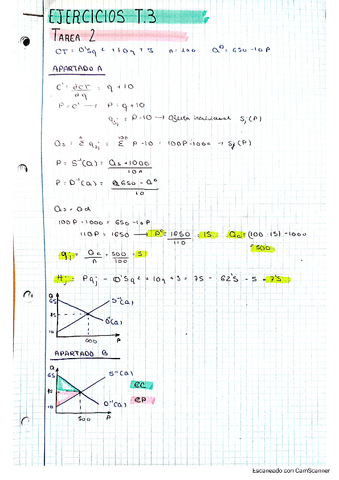 EJERCICIOS T.3
TAREA 2
CT = 0'5q² + 10q + 5 n = 100 Qᴰ = 650 - 10P
APARTADO A
C' = ∂CT/∂q = q + 10
P = C' → P = q + 10
q = P - 10 → Oferta individual Sj(P)
P - 10 = 100P - 1000 → Sj(P)
P = S⁻¹(Q) = Qs + 1000 / 100
P = D⁻¹(Q) = 650 - Qᴰ / 10
Qs = Qd
100P - 1000 = 650 - 10P
110P = 1650 → P = 1650/110 = 15 Q = (100·15) - 1000 = 500
qj = Q/n = 500/100 = 5
Pqj - 0'5q² + 10q + 5 = 75 - 62'5 - 5 = 7'5
Q
65
15
10
S⁻¹(Q)
D⁻¹(Q)
500 P
APARTADO B
Q
65
15
10
S⁻¹(Q)
D⁻¹(Q)
500 P
EC
EP
Escaneado con CamScanner